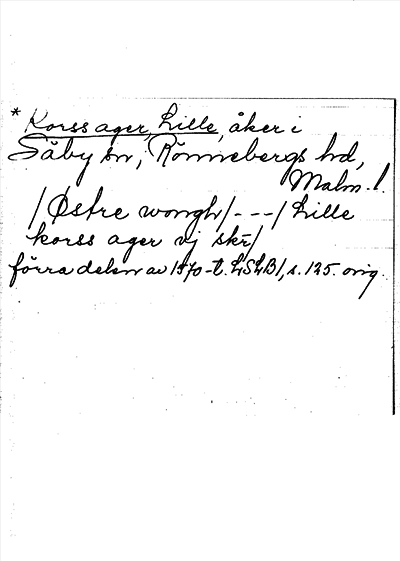 * Korss ager, Lille, åker i
Säby sn, Rönnebergs hd,
Malm. l.
/Østre wongh/---/Lille
korss ager vj skr/
förra delen av 1570-t. LSLB1, s. 125. orig.